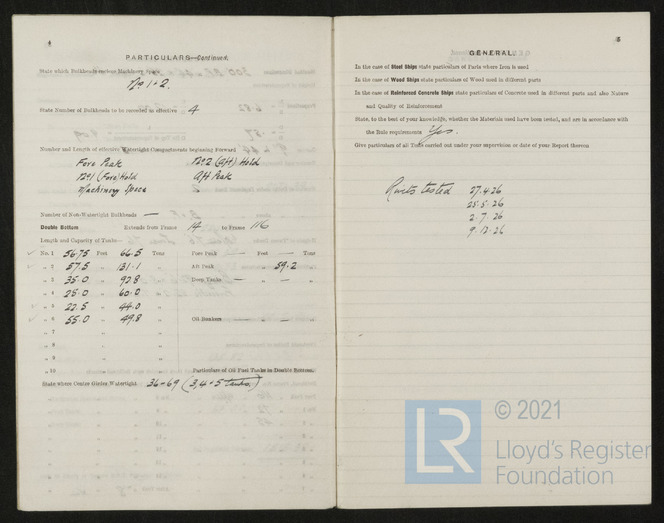 4
PARTICULARS—Continued.
State which Bulkheads enclose Machinery Space
No 1 & 2.
State Number of Bulkheads to be recorded as effective 4
Number and Length of effective Watertight Compartments beginning Forward
Fore Peak No2 (Aft) Hold
No1 (Fore) Hold Aft Peak
Machinery Space
Number of Non-Watertight Bulkheads —
Double Bottom Extends from Frame 14 to Frame 116
Length and Capacity of Tanks—
No. 1 56.75 Feet 66.5 Tons Fore Peak — Feet — Tons
„ 2 57.5 „ 131.1 „ Aft Peak 59.2 „
„ 3 35.0 „ 92.8 „ Deep Tanks — „ — „
„ 4 25.0 „ 60.0 „
„ 5 22.5 „ 44.0 „
„ 6 55.0 „ 49.8 „ Oil Bunkers — —
„ 7 „ „
„ 8 „ „
„ 9 „ „
„ 10 „ „ Particulars of Oil Fuel Tanks in Double Bottom.
State where Center Girder Watertight 36-69 (3, 4 & 5 tanks.)
5
GENERAL.
In the case of Steel Ships state particulars of Parts where Iron is used
In the case of Wood Ships state particulars of Wood used in different parts
In the case of Reinforced Concrete Ships state particulars of Concrete used in different parts and also Nature
and Quality of Reinforcement
State, to the best of your knowledge, whether the Materials used have been tested, and are in accordance with
the Rule requirements Yes.
Give particulars of all Tests carried out under your supervision or date of your Report thereon
Rivets tested 27.4.26
25.5.26
2.7.26
9.12.26
LR © 2021
Lloyd's Register
Foundation